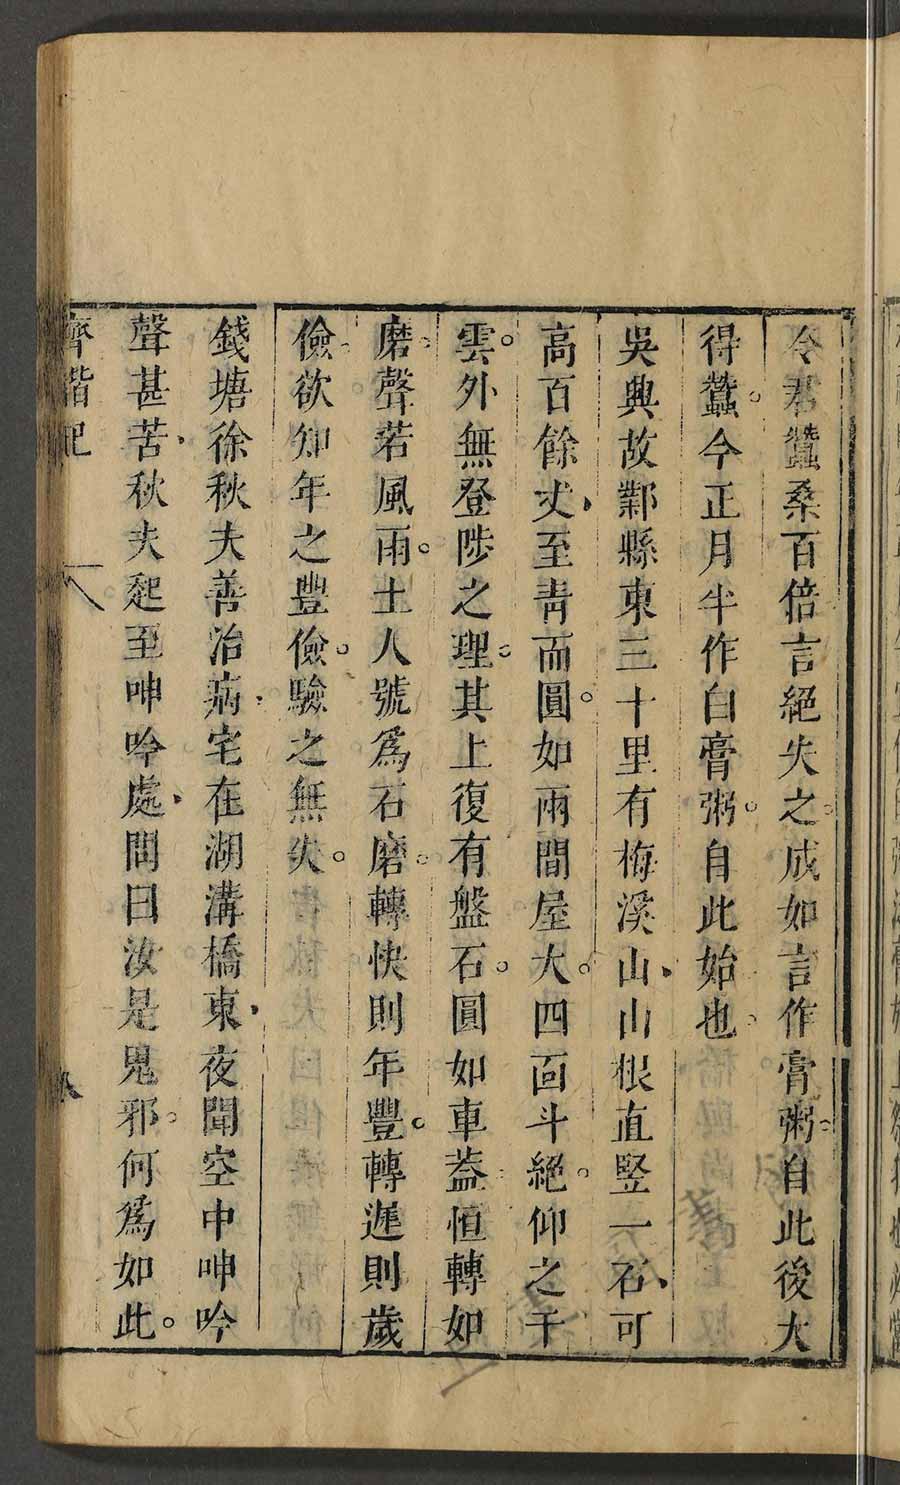 令君蠶桑百倍言絕失之成如言作膏粥自此後大
得蠶今正月半作白膏粥自此始也
吳興故鄣縣東三十里有梅溪山山根直竪一石可
高百餘丈至青而圓如兩間屋大四面斗絕仰之干
雲外無登陟之理其上復有盤石圓如車蓋恒轉如
磨聲若風雨土人號爲石磨轉快則年豐轉遲則歲
儉欲知年之豐儉驗之無失
錢塘徐秋夫善治病宅在湖溝橋東夜聞空中呻吟
聲甚苦秋夫起至呻吟處問曰汝是鬼邪何爲如此
齊諧記
八